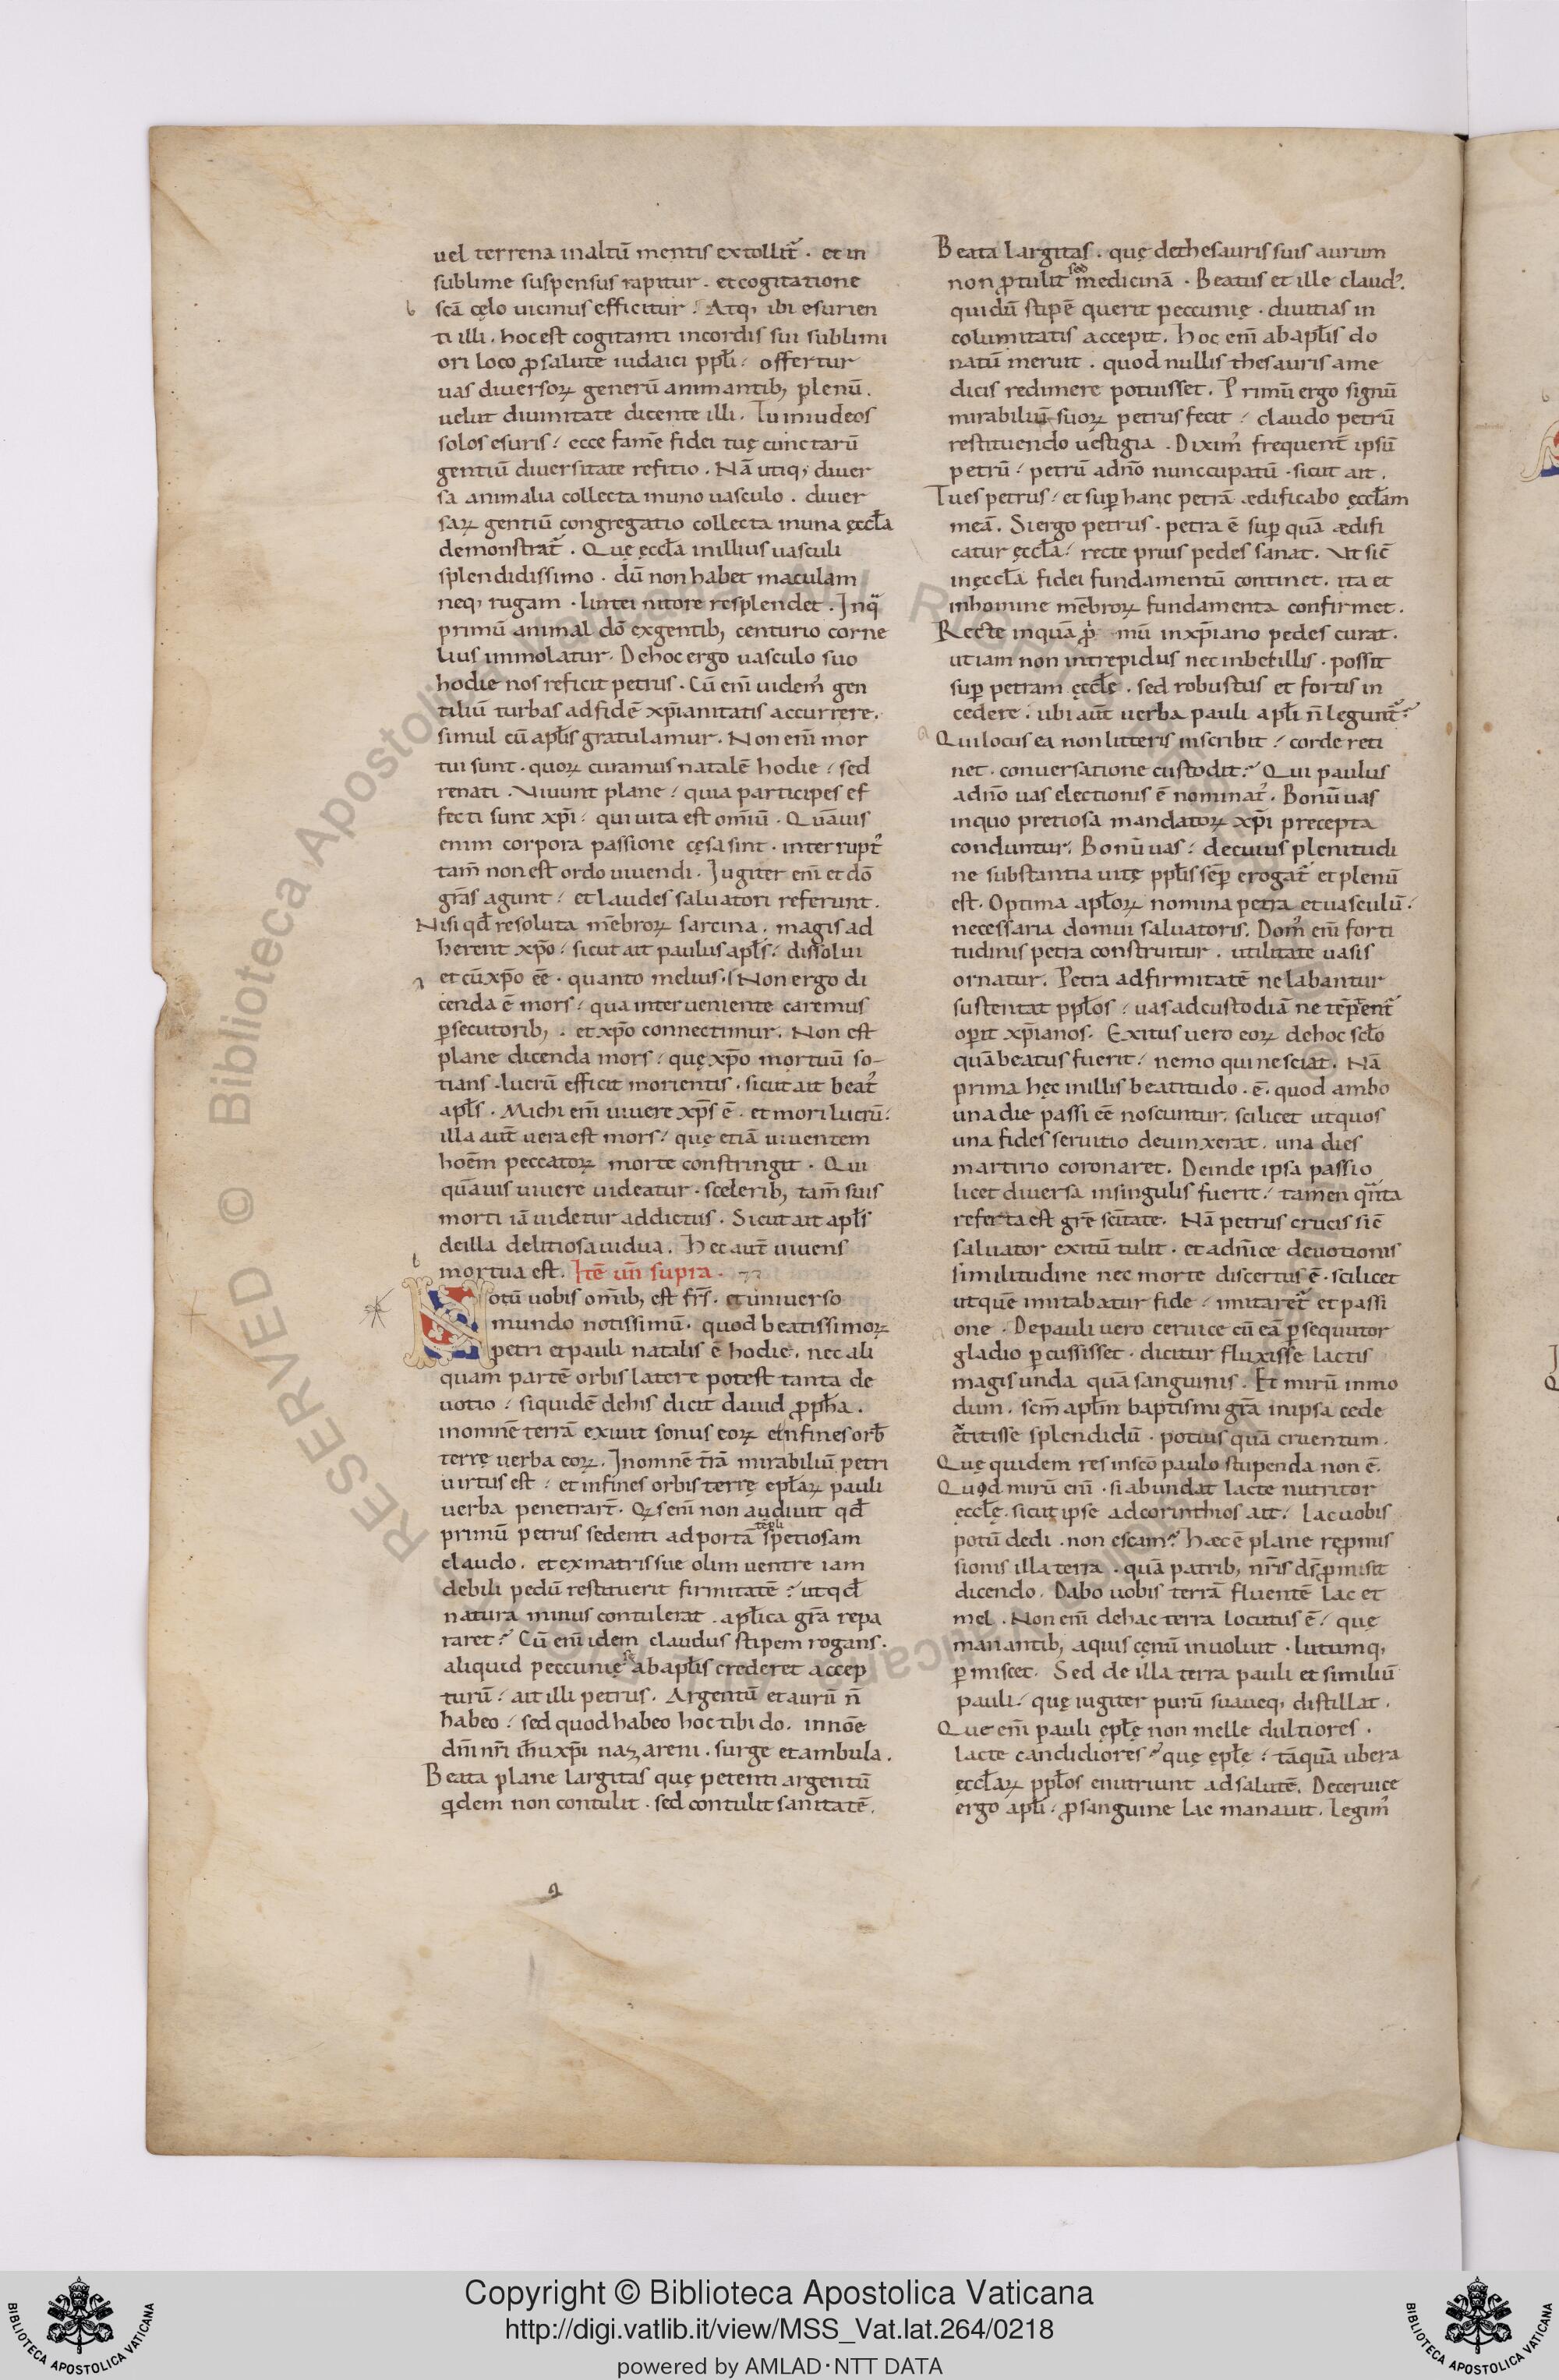 uel terrena inaltū mentis extollit᷑ . et in
sublime suspensus rapitur . et cogitatione
scā cęlo uicinus efficitur . Atq; ibi esurien
ti illi . hoc est cogitanti incordis sui sublimi
ori loco ꝓsalute iudaici ppłi . offertur
uas diuersoꝝ generū animantib; plenū .
uelut diuinitate dicente illi . Tu iniudeos
solos esuris . ecce famē fidei tuę cunctarū
gentiū diuersitate refitio . Nā utiq; diuer
sa animalia collecta inuno uasculo . diuer
saꝝ gentiū congregatio collecta inuna ęccła
demonstrat᷑ . Quę ęccła inillius uasculi
splendidissimo . dū non habet maculam
neq; rugam . lintei nitore resplendet . Inq̄
primū animal dō exgentib; centurio corne
lius immolatur . Dehoc ergo uasculo suo
hodie nos reficit petrus . Cū enī uidem᷒ gen
tiliū turbas adfidē xp̄ianitatis accurrere .
simul cū apłis gratulamur . Non enī mor
tui sunt . quoꝝ curamus natalē hodie . sed
renati . Viuunt plane . quia participes ef
fecti sunt xp̄i . qui uita est omīū . Quāuis
enim corpora passione cęsa sint . interrupt᷒
tam̄ non est ordo uiuendi . Iugiter enī et dō
gr̄as agunt . et laudes saluatori referunt .
Nisi qđ resoluta mēbroꝝ sarcina . magis ad
herent xp̄o . sicut ait paulus apłs . dissolui
et cū xp̄o eē . quanto melius . Non ergo di
cenda ē mors . qua interueniente caremus
ꝑsecutorib; . et xp̄o connectimur . Non est
plane dicenda mors . quę xp̄o mortuū so-
tians . lucrū efficit morientis . sicut ait beat᷒
apłs . Michi enī uiuere xp̄s ē . et mori lucrū .
illa aut̄ uera est mors . quę etiā uiuentem
hoēm peccatoꝝ morte constringit . Qui
quāuis uiuere uideatur . scelerib; tam̄ suis
morti iā uidetur addictus . Sicut ait apłs
deilla delitiosa uidua . Hec aut̄ uiuens
mortua est . Itē un̄ supra .
Notū uobis omīb; est fr̄s . et uniuerso
mundo notissimū . quod beatissimoꝝ
petri et pauli natalis ē hodie . nec ali
quam partē orbis latere potest tanta de
uotio . siquidē dehis dicit dauid ꝓpħa .
inomnē terrā exiuit sonus eoꝝ et infines orb̄
terrę uerba eoꝝ . Inomnē t̄rā mirabiliū petri
uirtus est . et infines orbis terrę epłaꝝ pauli
uerba penetrar̄t . Qis enī non audiuit qđ
primū petrus sedenti ad portā tēpli spetiosam
claudo . et exmatris sue olim uentre iam
debili pedū restituerit firmitatē . ut qđ
natura minus contulerat . apłica gr̄a repa
raret . Cū enī idem claudus stipem rogans .
aliquid peccunię se abapłis crederet accep
turū . ait illi petrus . Argentū et aurū n̄
habeo . sed quod habeo hoc tibi do . innōe
dn̄i nr̄i iħu xp̄i nazareni . surge et ambula .
Beata plane largitas quę petenti argentū
q̇dem non contulit . sed contulit sanitatē .
Beata largitas . quę dethesauris suis aurum
non ꝓtulit sed medicinā . Beatus et ille claud᷒ .
qui dū stipē querit peccunię . diuitias in
columitatis accepit . Hoc enī abapłis do
natū meruit . quod nullis thesauris a me
dicis redimere potuisset . Primū ergo signū
mirabiliū suoꝝ petrus fecit . claudo petrū
restituendo uestigia . Dixim᷒ frequent̄ ipsū
petrū . petrū adn̄o nunccupatū . sicut ait .
Tu es petrus . et suꝑ hanc petrā ædificabo ęccłam
meā . Si ergo petrus . petra ē suꝑ quā ædifi
catur ęccła . recte prius pedes sanat . Vt sic̄
inęccła fidei fundamentū continet . ita et
inhomine mēbroꝝ fundamenta confirmet .
Recte inquā pi mū inxp̄iano pedes curat .
ut iam non intrepidus nec inbecillis . possit
suꝑ petram ęccłę . sed robustus et fortis in
cedere . ubi aut̄ uerba pauli apłi n̄ legunt᷑
Qui locus ea non litteris inscribit . corde reti
net . conuersatione custodit . Qui paulus
adn̄o uas electionis ē nominat᷑ . Bonū uas
inquo pretiosa mandatoꝝ xp̄i precepta
conduntur . Bonū uas . decuius plenitudi
ne substantia uitę ppłis sēꝑ erogat᷑ et plenū
est . Optima apłoꝝ nomina petra et uasculū .
necessaria domui saluatoris . Dom᷒ enī forti
tudinis petra construitur . utilitate uasis
ornatur . Petra adfirmitatē ne labantur
sustentat ppłos . uas adcustodiā ne tēp̄tent᷑
oꝑit xp̄ianos . Exitus uero eoꝝ dehoc scło
quā beatus fuerit . nemo qui nesciat . Nā
prima hęc inillis beatitudo . ē . quod ambo
una die passi eē noscuntur . scilicet ut quos
una fides seruitio deuinxerat . una dies
martirio coronaret . Deinde ipsa passio
licet diuersa insingulis fuerit . tamen q̄nta
referta est gr̄e scīitate . Nā petrus crucis sic̄
saluator exitū tulit . et adn̄ice deuotionis
similitudine nec morte discertus ē . scilicet
ut quē imitabatur fide . imitaret᷑ et passi
one . De pauli uero ceruice cū eā ꝑsequutor
gladio ꝑcussisset . dicitur fluxisse lactis
magis unda quā sanguinis . Et mirū inmo
dum . scm̄ apłm baptismi gr̄a inipsa cede
extitisse splendidū . potius quā cruentum .
Quę quidem res inscō paulo stupenda non ē .
Quod mirū enī . si abundat lacte nutritor
ęccłę . sicut ipse ad corinthios ait . Lac uobis
potū dedi . non escam . Hæc ē plane reꝓmis
sionis illa terra . quā patrib; nr̄is ds̄ ꝓmisit
dicendo . Dabo uobis terrā fluentē lac et
mel . Non enī dehac terra locutus ē . quę
manantib; aquis cęnū inuoluit . lutumq;
ꝑmiscet . Sed de illa terra pauli et similiū
pauli . quę iugiter purū suaueq; distillat .
Que enī pauli ępłę non melle dultiores .
lacte candidiores . quę ępłę . tāquā ubera
ęccłaꝝ ppłos enutriunt ad salutē . De ceruice
ergo apłi . ꝓ sanguine lac manauit . Legim᷒
Copyright © Biblioteca Apostolica Vaticana
http://digi.vatlib.it/view/MSS_Vat.lat.264/0218
powered by AMLAD·NTT DATA
BIBLIOTECA APOSTOLICA VATICANA
BIBLIOTECA APOSTOLICA VATICANA